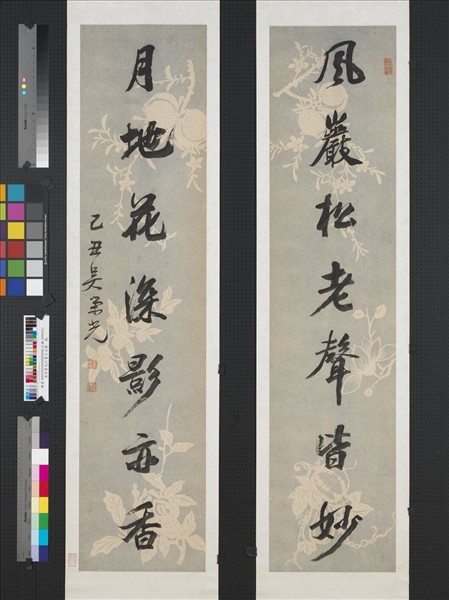 風巖松老聲皆妙
月地花深影亦香
己丑吳榮光